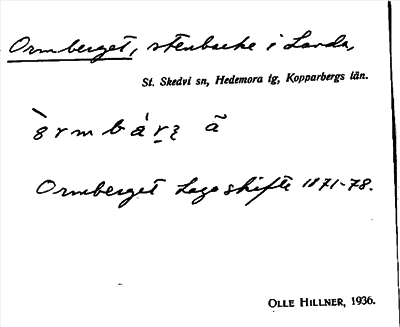 Ormberget, stenbacke i Landa,
St. Skedvi sn, Hedemora tg, Kopparbergs län.
Ormberget Laga skifte 1871-78.
OLLE HILLNER, 1936.